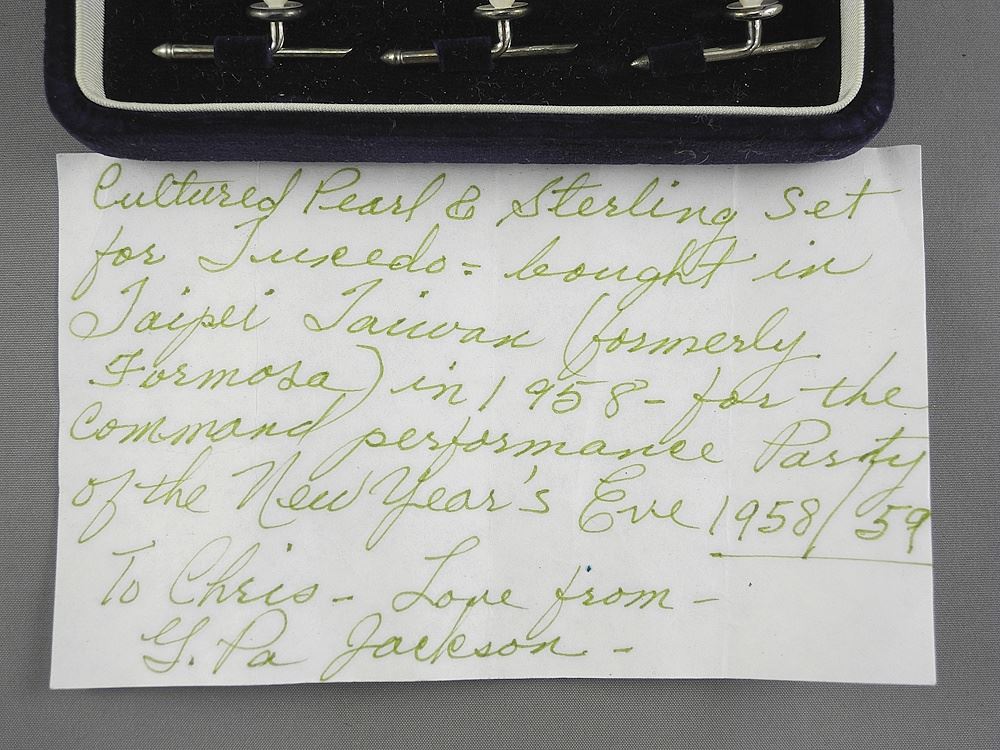 Cultured Pearl & Sterling Set
for Tuxedo = bought in
Taipei Taiwan (formerly
Formosa) in 1958 - for the
command performance Party
of the New Year's Eve 1958/59
To Chris - Love from -
G. Pa Jackson -